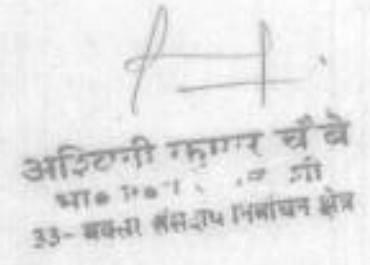 अश्विनी कुमार चौबे
भा०
33- बक्सर संसदीय निर्वाचन क्षेत्र